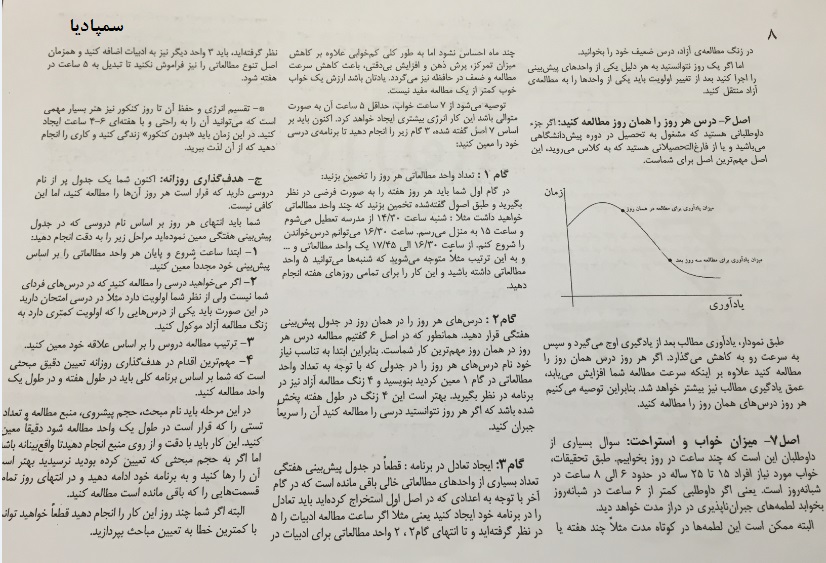 سمپادیا
۸
در زنگ مطالعه‌ی آزاد، درس ضعیف خود را بخوانید.
اما اگر یک روز نتوانستید به هر دلیل یکی از واحدهای پیش‌بینی
را اجرا کنید بعد از تغییر اولویت باید یکی از واحدها را به مطالعه‌ی
آزاد منتقل کنید.
اصل۶- درس هر روز را همان روز مطالعه کنید: اگر جزء
داوطلبانی هستید که مشغول به تحصیل در دوره پیش‌دانشگاهی
می‌باشید و یا از فارغ‌التحصیلانی هستید که به کلاس می‌روید، این
اصل مهم‌ترین اصل برای شماست.
زمان
میزان یادآوری برای مطالعه در همان روز
میزان یادآوری برای مطالعه سه روز بعد
یادآوری
طبق نمودار، یادآوری مطالب بعد از یادگیری اوج می‌گیرد و سپس
به سرعت رو به کاهش می‌گذارد. اگر هر روز درس همان روز را
مطالعه کنید علاوه بر اینکه سرعت مطالعه شما افزایش می‌یابد،
عمق یادگیری مطالب نیز بیشتر خواهد شد. بنابراین توصیه می‌کنیم
هر روز درس‌های همان روز را مطالعه کنید.
اصل۷- میزان خواب و استراحت: سوال بسیاری از
داوطلبان این است که چند ساعت در روز بخوابیم. طبق تحقیقات،
خواب مورد نیاز افراد ۱۵ تا ۲۵ ساله در حدود ۶ الی ۸ ساعت در
شبانه‌روز است. یعنی اگر داوطلبی کمتر از ۶ ساعت در شبانه‌روز
بخوابد لطمه‌های جبران‌ناپذیری در دراز مدت خواهد دید.
البته ممکن است این لطمه‌ها در کوتاه مدت مثلاً چند هفته یا
چند ماه احساس نشود اما به طور کلی کم‌خوابی علاوه بر کاهش
میزان تمرکز، پرش ذهن و افزایش بی‌دقتی، باعث کاهش سرعت
مطالعه و ضعف در حافظه نیز می‌گردد. یادتان باشد ارزش یک خواب
خوب کمتر از یک مطالعه مفید نیست.
توصیه می‌شود از ۷ ساعت خواب، حداقل ۵ ساعت آن به صورت
متوالی باشد این کار انرژی بیشتری ایجاد خواهد کرد. اکنون باید بر
اساس ۷ اصل گفته شده، ۳ گام زیر را انجام دهید تا برنامه‌ی درسی
خود را معین کنید:
گام ۱ : تعداد واحد مطالعاتی هر روز را تخمین بزنید:
در گام اول شما باید هر روز هفته را به صورت فرضی در نظر
بگیرید و طبق اصول گفته‌شده تخمین بزنید که چند واحد مطالعاتی
خواهید داشت مثلا : شنبه ساعت ۱۴/۳۰ از مدرسه تعطیل می‌شوم
و ساعت ۱۵ به منزل می‌رسم. ساعت ۱۶/۳۰ می‌توانم درس‌خواندن
را شروع کنم. از ساعت ۱۶/۳۰ الی ۱۷/۴۵ یک واحد مطالعاتی و ...
و به این ترتیب مثلاً متوجه می‌شوید که شنبه‌ها می‌توانید ۵ واحد
مطالعاتی داشته باشید و این کار را برای تمامی روزهای هفته انجام
دهید.
گام۲ : درس‌های هر روز را در همان روز در جدول پیش‌بینی
هفتگی قرار دهید. همانطور که در اصل ۶ گفتیم مطالعه درس هر
روز در همان روز مهم‌ترین کار شماست. بنابراین ابتدا به تناسب نیاز
خود نام درس‌های هر روز را در جدولی که با توجه به تعداد واحد
مطالعاتی در گام ۱ معین کردید بنویسید و ۴ زنگ مطالعه آزاد نیز در
برنامه در نظر بگیرید. بهتر است این ۴ زنگ در طول هفته پخش
شده باشد که اگر هر روز نتوانستید درسی را مطالعه کنید آن را سریعاً
جبران کنید.
گام۳: ایجاد تعادل در برنامه : قطعاً در جدول پیش‌بینی هفتگی
تعداد بسیاری از واحدهای مطالعاتی خالی باقی مانده است که در گام
آخر با توجه به اعدادی که در اصل اول استخراج کرده‌اید باید تعادل
را در برنامه خود ایجاد کنید یعنی مثلا اگر ساعت مطالعه ادبیات را ۵
در نظر گرفته‌اید و تا انتهای گام۲ ، ۲ واحد مطالعاتی برای ادبیات در
نظر گرفته‌اید، باید ۳ واحد دیگر نیز به ادبیات اضافه کنید و همزمان
اصل تنوع مطالعاتی را نیز فراموش نکنید تا تبدیل به ۵ ساعت در
هفته شود.
*- تقسیم انرژی و حفظ آن تا روز کنکور نیز هنر بسیار مهمی
است که می‌توانید آن را به راحتی و با هفته‌ای ۶-۴ ساعت ایجاد
کنید. در این زمان باید «بدون کنکور» زندگی کنید و کاری را انجام
دهید که از آن لذت ببرید.
ج- هدف‌گذاری روزانه: اکنون شما یک جدول پر از نام
دروسی دارید که قرار است هر روز آن‌ها را مطالعه کنید، اما این
کافی نیست.
شما باید انتهای هر روز بر اساس نام دروسی که در جدول
پیش‌بینی هفتگی معین نموده‌اید مراحل زیر را به دقت انجام دهید:
۱- ابتدا ساعت شروع و پایان هر واحد مطالعاتی را بر اساس
پیش‌بینی خود مجدداً معین کنید.
۲- اگر می‌خواهید درسی را مطالعه کنید که در درس‌های فردای
شما نیست ولی از نظر شما اولویت دارد مثلاً در درسی امتحان دارید
در این صورت باید یکی از درس‌هایی را که اولویت کمتری دارد به
زنگ مطالعه آزاد موکول کنید.
۳- ترتیب مطالعه دروس را بر اساس علاقه خود معین کنید.
۴- مهم‌ترین اقدام در هدف‌گذاری روزانه تعیین دقیق مبحثی
است که شما بر اساس برنامه کلی باید در طول هفته و در طول یک
واحد مطالعه کنید.
در این مرحله باید نام مبحث، حجم پیشروی، منبع مطالعه و تعداد
تستی را که قرار است در طول یک واحد مطالعه شود دقیقاً معین
کنید. این کار باید با دقت و از روی منبع انجام دهیدتا واقع‌بینانه باشد
اما اگر به حجم مبحثی که تعیین کرده بودید نرسیدید بهتر است
آن را رها کنید و به برنامه خود ادامه دهید و در انتهای روز تمام
قسمت‌هایی را که باقی مانده است مطالعه کنید.
البته اگر شما چند روز این کار را انجام دهید قطعاً خواهید توانـ
با کمترین خطا به تعیین مباحث بپردازید.